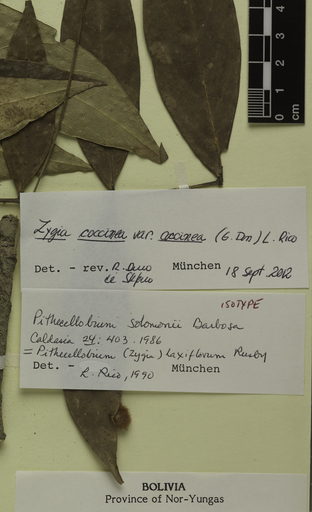 0 1 2 3 4
cm
Zygia coccinea var. coccinea (G. Don) L. Rico
Det. - rev. R. Duno
de Stefno
München
18 Sept 2012
ISOTYPE
Pithecellobium solomonii Barbosa
Caldasia 24: 403. 1986
= Pithecellobium (Zygia) laxiflorum Rusby
Det. - L. Rico, 1990 München
BOLIVIA
Province of Nor-Yungas